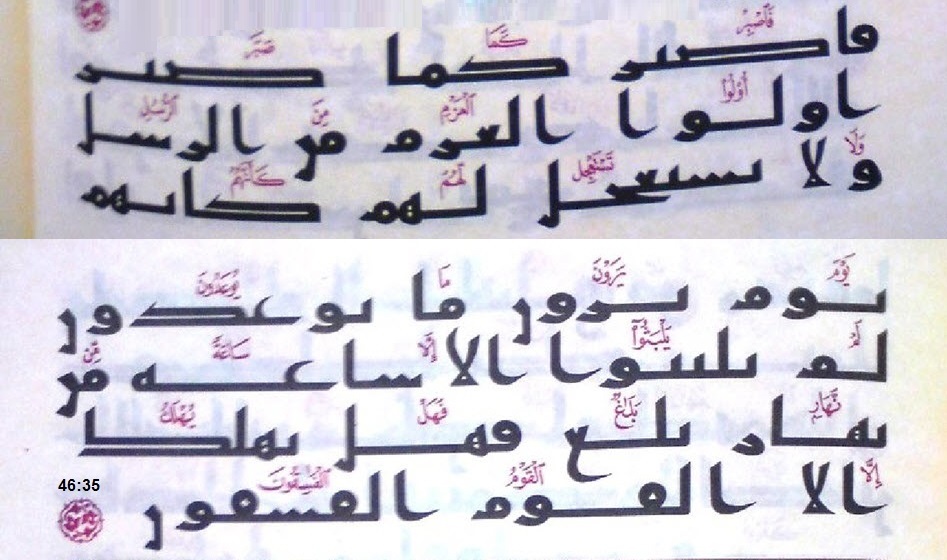 فَٱصْبِرْ كَمَا صَبَرَ
فاصبر كما صبر
أُو۟لُوا۟ ٱلْعَزْمِ مِنَ ٱلرُّسُلِ
اولوا العزم من الرسل
وَلَا تَسْتَعْجِل لَّهُمْ كَأَنَّهُمْ
ولا تستعجل لهم كانهم
يَوْمَ يَرَوْنَ مَا يُوعَدُونَ
يوم يرون ما يوعدون
لَمْ يَلْبَثُوٓا۟ إِلَّا سَاعَةً مِّن
لم يلبثوا الا ساعة من
نَّهَارٍ بَلَٰغٌ فَهَلْ يُهْلَكُ
نهار بلغ فهل يهلك
إِلَّا ٱلْقَوْمُ ٱلْفَٰسِقُونَ
الا القوم الفسقون
46:35